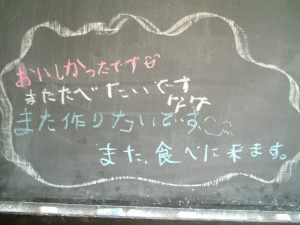 おいしかったです
またたべたいです
また作りたいです
また、食べに来ます。